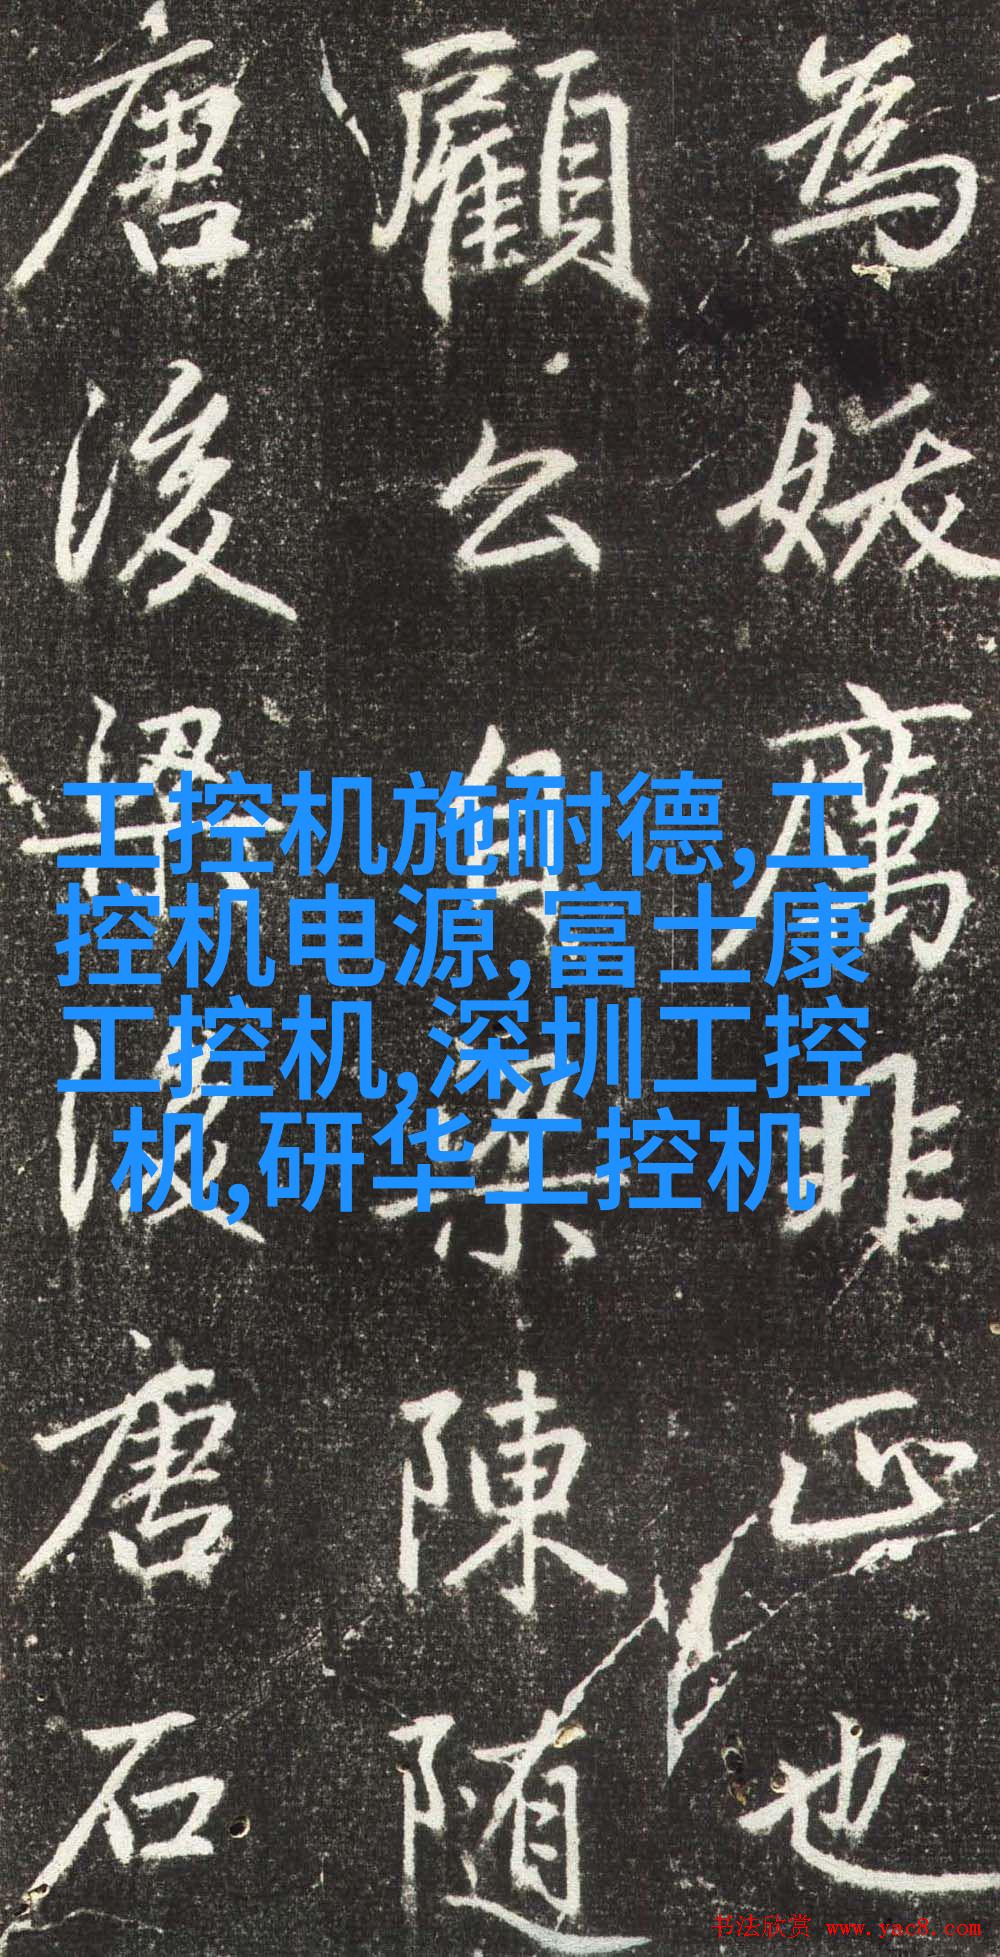 為妖厲非正也
顧公自梁陳随
唐後梁後唐石
工控机施耐德,工
控机电源,富士康
工控机,深圳工控
机,研华工控机
书法欣赏 www.yac8.com